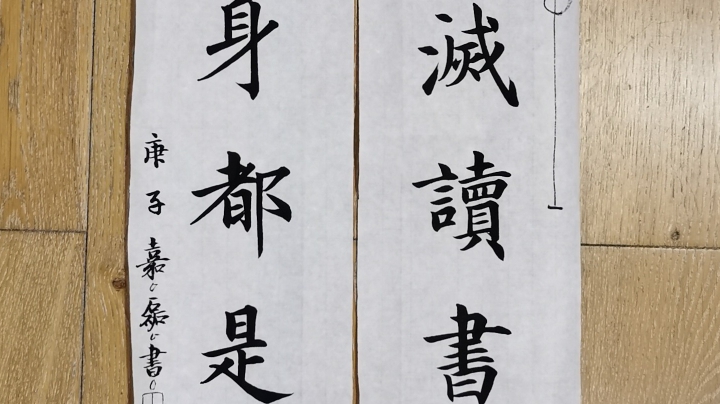 滅讀書
身都是
庚子嘉磊書